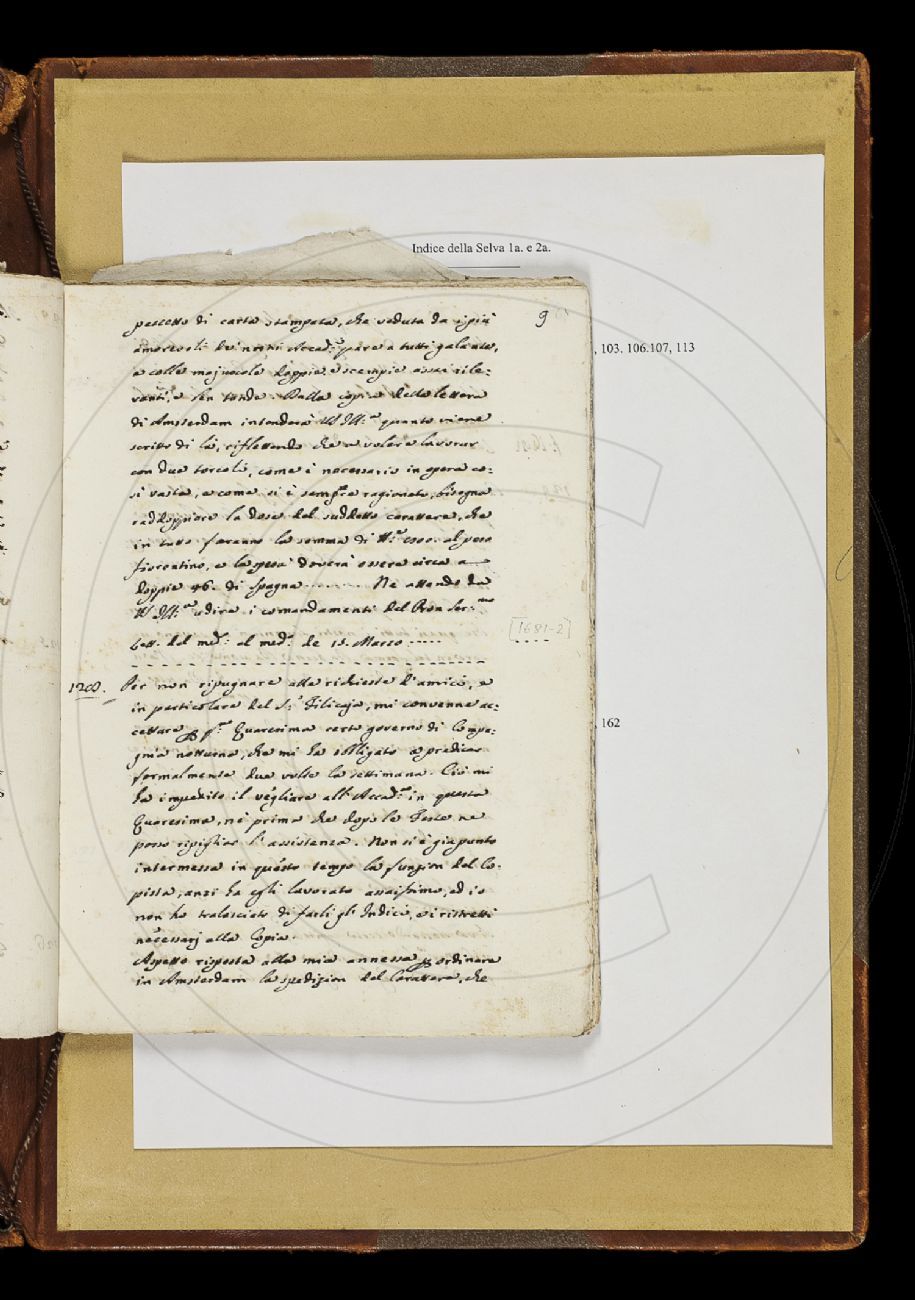 Indice della Selva 1a. e 2a.
9
, 103, 106.107, 113
pezzetto di carta stampata, che veduta da i più
amorevoli de' nostri Accad.ci pare a tutti galante,
e colle majuscole doppie, e scempie assai rile:
vanti, e ben tonde. Dalla copia della lettera
di Amsterdam intenderà VS Ill:ma quanto viene
scritto di là, riflettendo che a volere lavorar
con due torcoli, come è necessario in opera co:
sì vasta, e come si è sempre ragionato, bisogna
raddoppiare la dose del suddetto carattere, che
in tutto faranno la somma di al peso
fiorentino, e la spesa doverà essere circa a
doppie 46. di Spagna ........ Ne attendo da
VS Ill:ma udire i comandamenti del Pron Ser:mo
Lett. del med:o al med:o de 15. Marzo .....
[1681-2]
1200. Per non ripugnare alle richieste d'amici, e
in particolare del S.r Filicaja, mi convenne ac:
cettare p q.ta Quaresima certo governo di Compa:
gnia notturna, che mi ha obbligato a predicar
formalmente due volte la settimana. Ciò mi
ha impedito il vegliare all'Accad.a in questa
Quaresima, nè prima che dopo le Feste ne
posso ripigliar l'assistenza. Non si è già punto
intermessa in questo tempo la funzion del Co:
pista, anzi ha egli lavorato assaissimo, ed io
non ho tralasciato di farli gl'Indici, e i ristretti
necessarj alla Copia.
Aspetto risposta alla mia annessa p ordinare
in Amsterdam la spedizion del Carattere, che
, 162